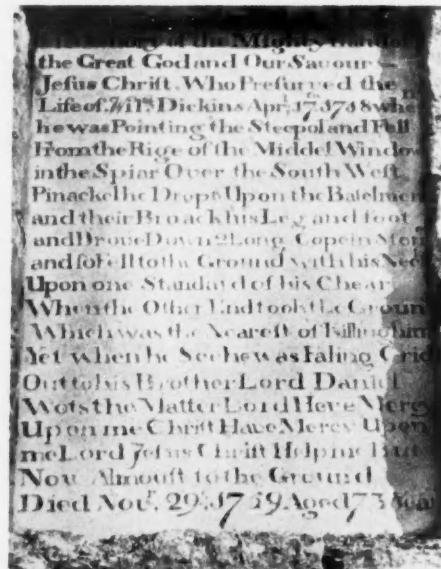 of the Mighty hand of
the Great God and Our Saviour
Jeſus Chriſt. Who Preſurved the
Life of Wilm. Dickins Aprl. 17th. 1718 when
he was Pointing the Steepol and Fell
From the Rige of the Middel Window
in the Spiar Over the South Weſt
Pinackel he Dropt Upon the Batelment
and their Broack his Leg and foot
and Drove Down 2 Long Copein Ston
and so fell to the Ground with his Neck
Upon one Standard of his Chear
When the Other End took the Ground
Which was the Neareſt of Killing him
Yet when he See he was Faling Crid
Out to his Brother Lord Daniel
Wots the Matter Lord Have Mercy
Upon me Chriſt Have Mercy Upon
me Lord Jeſus Chriſt Help me But
Now Almouſt to the Ground
Died Novr. 29th. 1759. Aged 73 Years